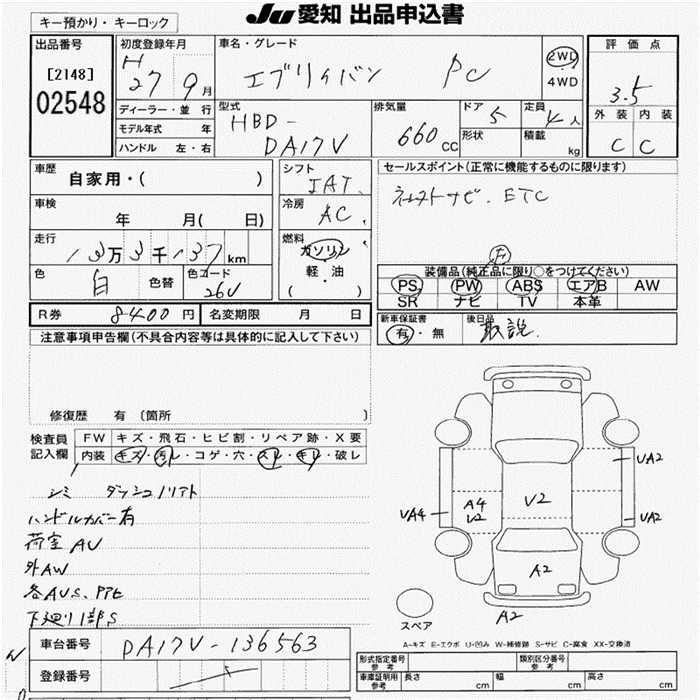 JU愛知 出品申込書
キー預かり・キーロック
出品番号
[2148]
02548
初度登録年月
H
27 9月
ディーラー・並 行
モデル年式 年
ハンドル 左・右
車名・グレード
エブリイバン PC
2WD
4WD
評 価 点
3.5
外 装 内 装
C C
型式
HBD-
DA17V
排気量
660cc
ドア 5
形状
定員 人
積載 kg
車歴
自家用・( )
車検
年 月( 日)
走行
13万3千137km
色
白
色替
色コード
26U
シフト
冷房
AC
燃料
ガソリン
軽・油
( )
セールスポイント(正常に機能するものに限ります)
ETC
装備品(純正品に限り○をつけてください)
PS PW ABS エアB AW
SR ナビ TV 本革
R券 8400円 名変期限 月 日
新車保証書
有・無
後日品
取説.
注意事項申告欄(不具合内容等は具体的に記入して下さい)
修復歴 有 〔箇所 〕
検査員
記入欄
FW キズ・飛石・ヒビ割・リペア跡・X要
内装 キズ・汚レ・コゲ・穴・スレ・キレ・破レ
シミ
ハンドルカバー有
荷室AU
外AW
各AUS、PPE
下廻り1部S
UA4
A4
U2
V2
UA2
UA2
A2
A2
スペア
A-キズ E-エクボ U-凹み W-補修跡 S-サビ C-腐食 XX-交換済
車台番号 DA17V-136563
登録番号
形式指定番号
参考
類別区分番号
参考
車庫証明用
参考
長さ cm 幅 cm 高さ cm